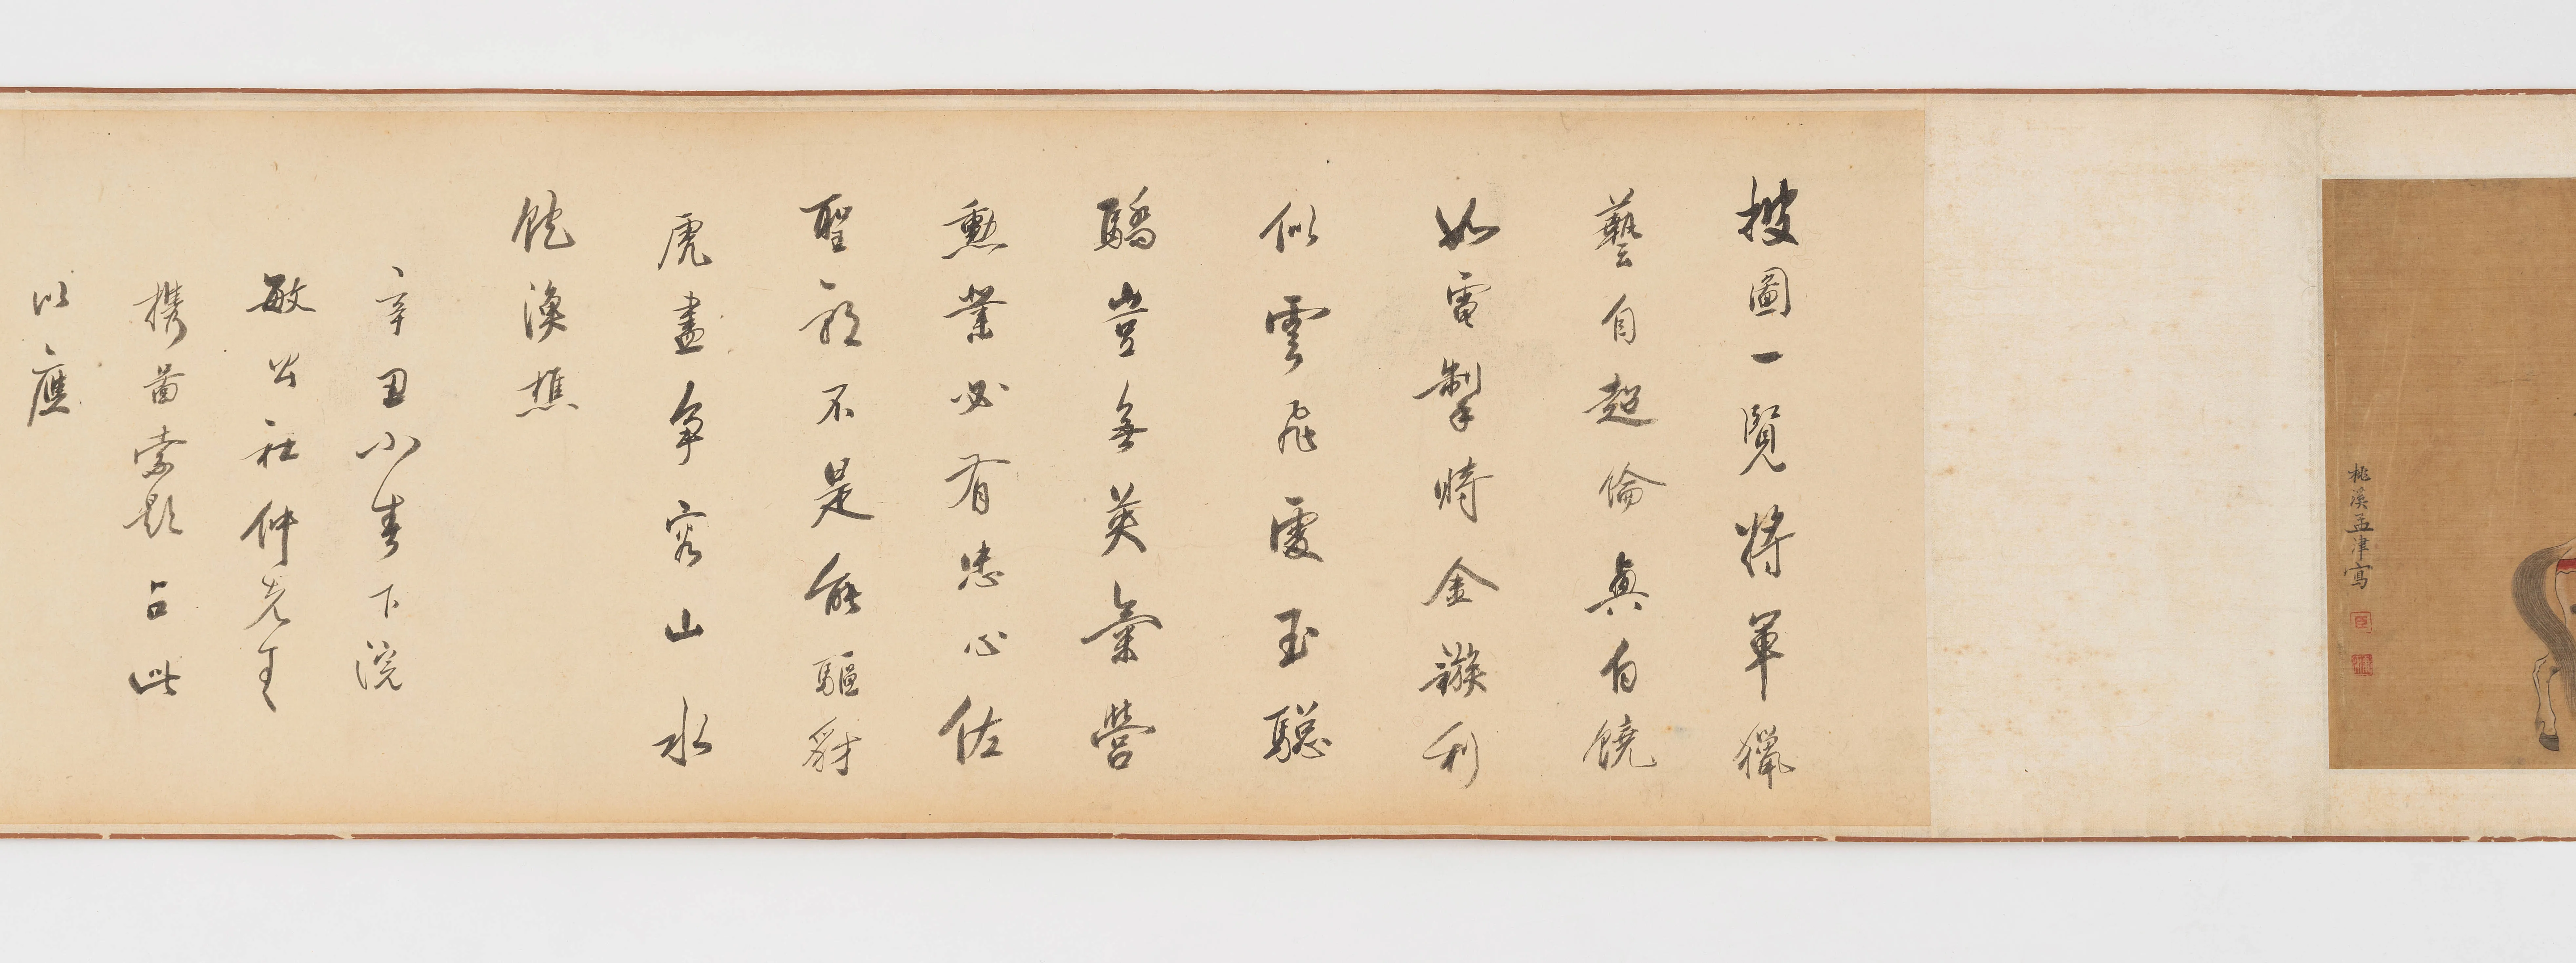 桃溪孟津寫
披圖一覽將軍獵
藝自超倫真自饒
如電掣時金鏃利
似雲飛處玉驄
驕豈無英氣營
勳業必有忠心佐
聖朝不是能驅豺
虎盡爭容山水
飽漁樵
辛丑小春下浣
敏公社仲先生
携圖索題占此
以應